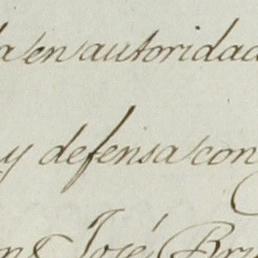 da en autoridad
y defensa con
José Bru